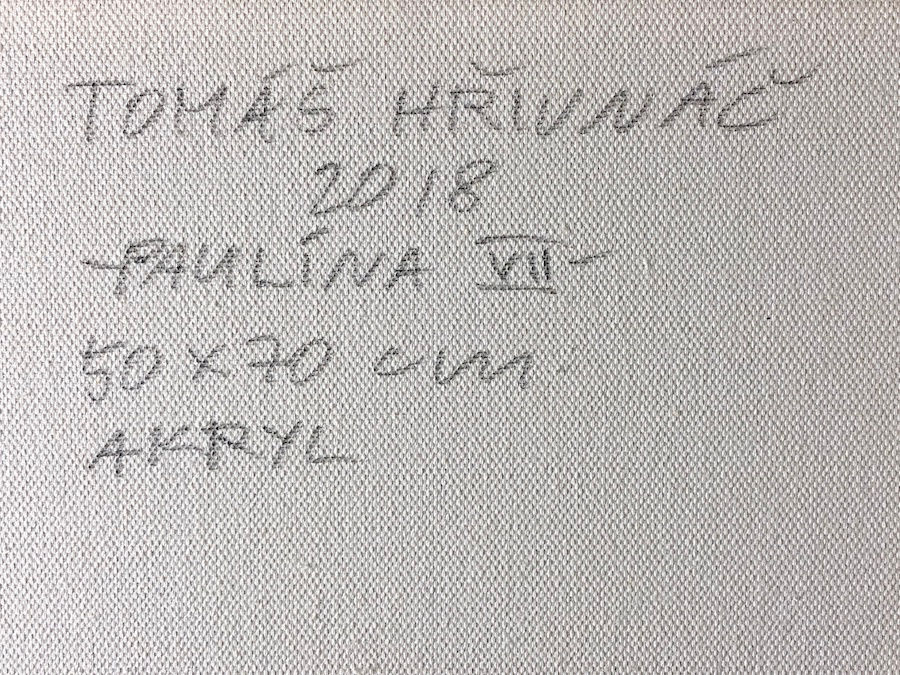 TOMÁŠ HŘIVNÁČ
2018
-PAULÍNA VII-
50x70 cm
AKRYL